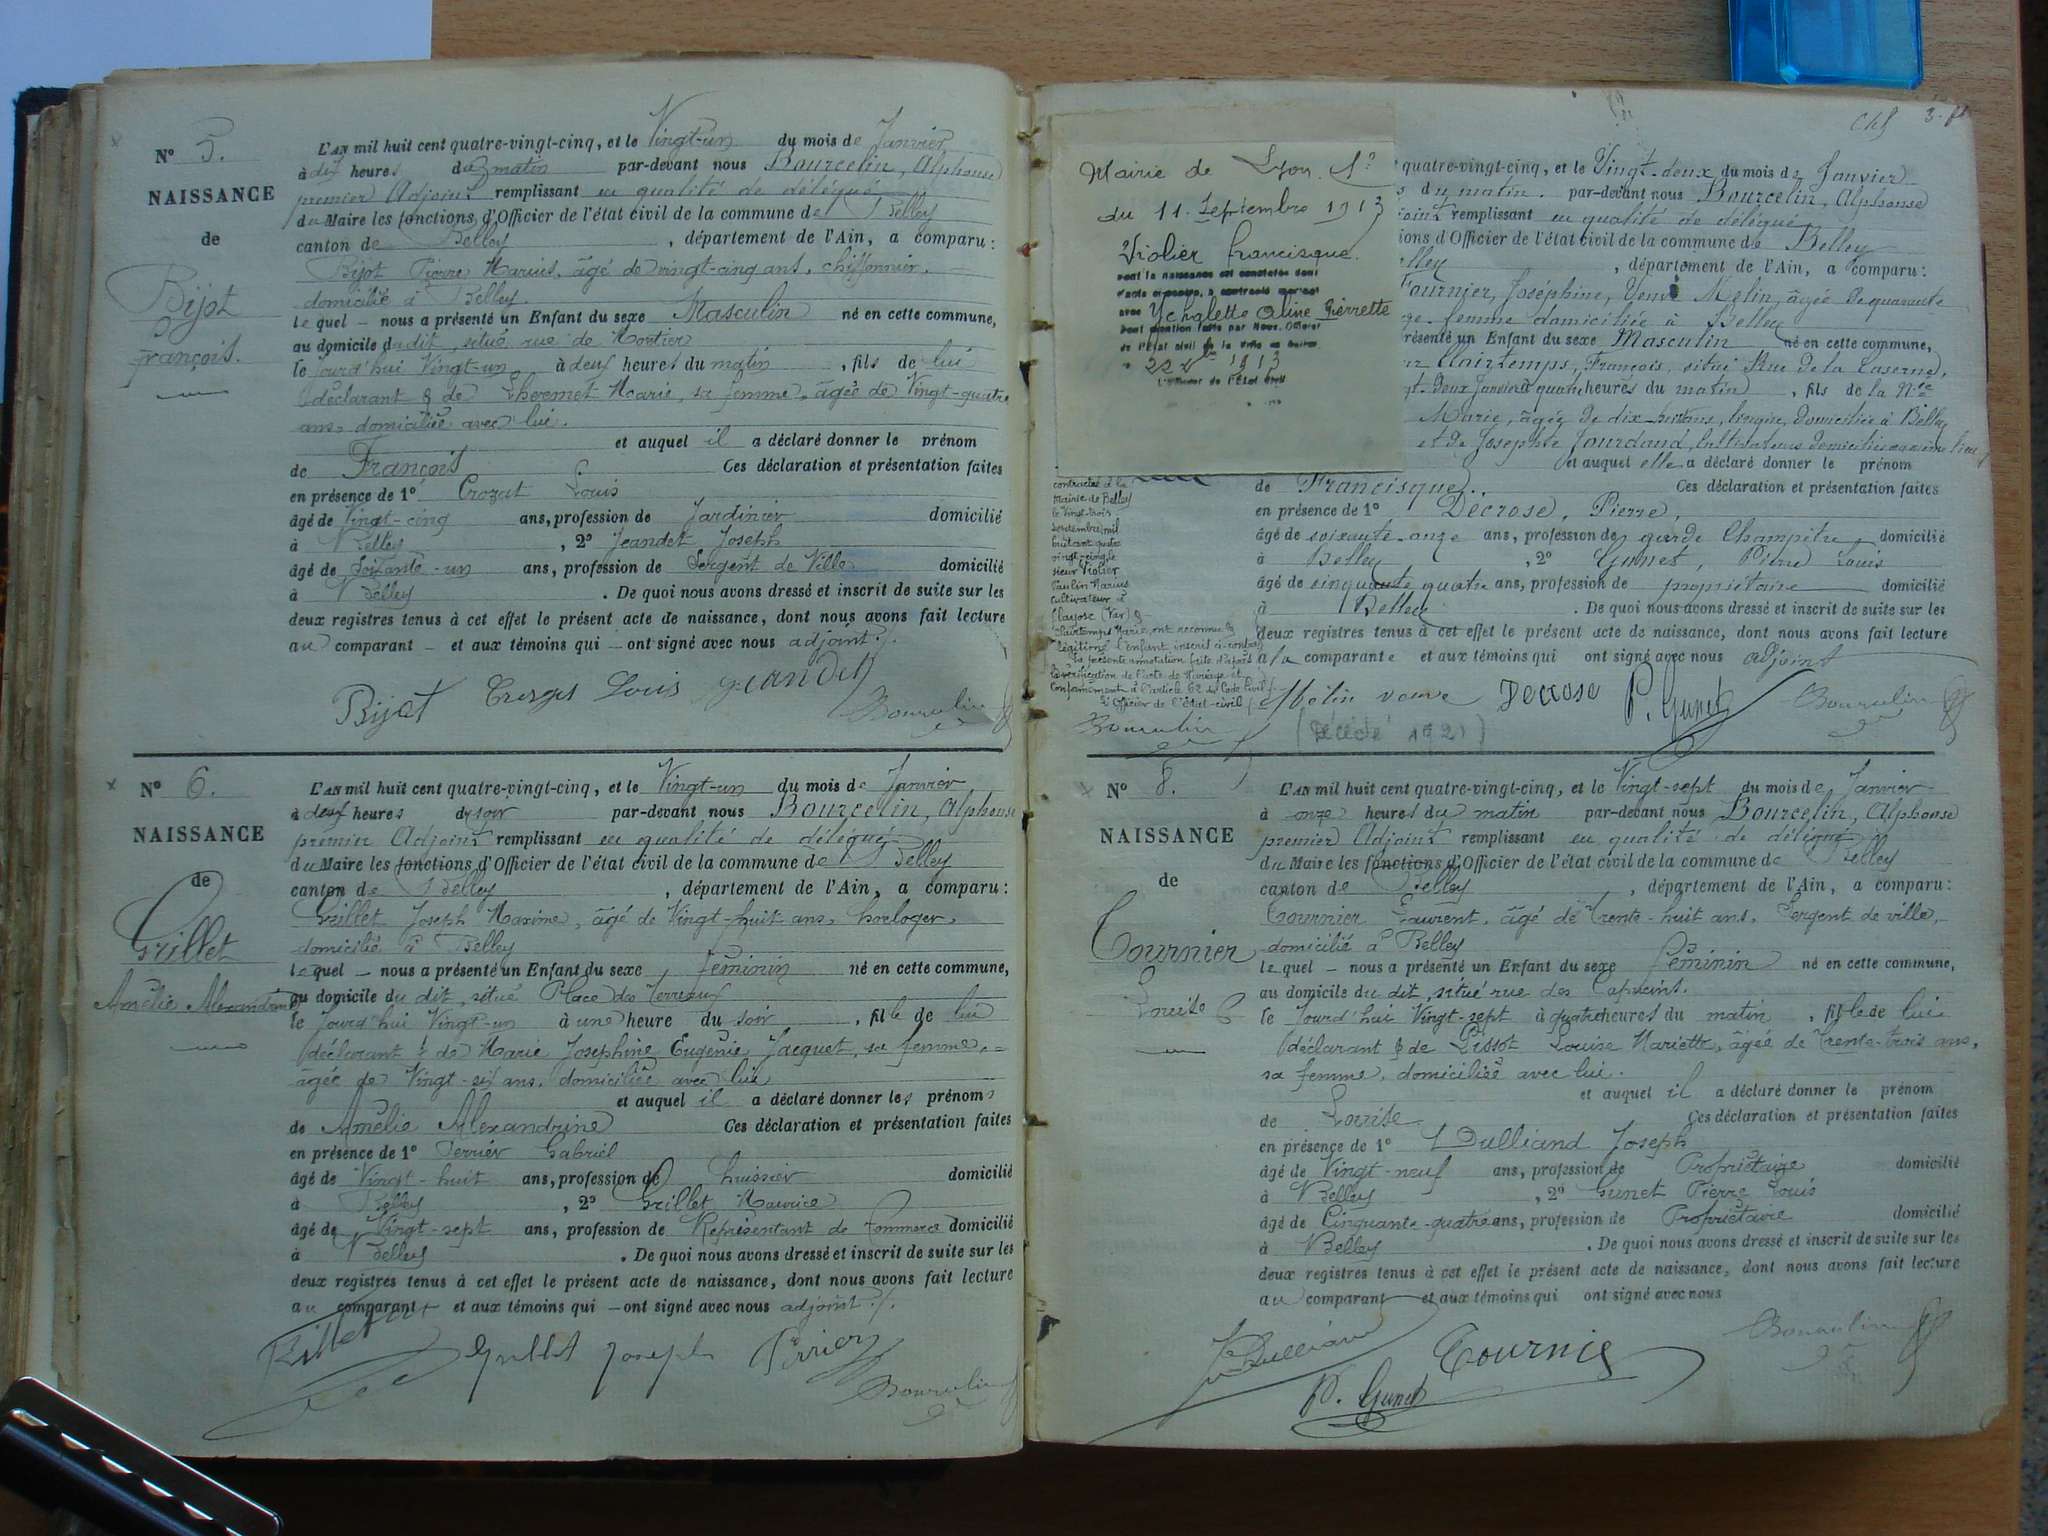 N° 5.
NAISSANCE
de
Bijot
François.
L'AN mil huit cent quatre-vingt-cinq, et le Vingt-un du mois de Janvier
à dix heures du matin par-devant nous Bourcelin, Alphonse
premier Adjoint remplissant en qualité de délégué
du Maire les fonctions d'Officier de l'état civil de la commune de Belley
canton de Belley, département de l'Ain, a comparu :
Bijot Pierre Marius, âgé de vingt-cinq ans, chiffonnier,
domicilié à Belley.
lequel – nous a présenté un Enfant du sexe Masculin né en cette commune,
au domicile du dit, situé rue de
le jourd'hui Vingt-un à deux heures du matin, fils de lui
déclarant & de Thermet Marie, sa femme, âgée de Vingt-quatre
ans, domiciliée avec lui.
et auquel il a déclaré donner le prénom
de François Ces déclaration et présentation faites
en présence de 1° Crozat Louis
âgé de Vingt-cinq ans, profession de Jardinier domicilié
à Belley, 2° Jeandet Joseph
âgé de Soixante-un ans, profession de Sergent de Ville domicilié
à Belley. De quoi nous avons dressé et inscrit de suite sur les
deux registres tenus à cet effet le présent acte de naissance, dont nous avons fait lecture
au comparant – et aux témoins qui – ont signé avec nous adjoint.
Bijot Louis Jeandet Bourcelin
N° 6.
NAISSANCE
de
Grillet
Amélie Alexandrine
L'AN mil huit cent quatre-vingt-cinq, et le Vingt-un du mois de Janvier
à deux heures du soir par-devant nous Bourcelin, Alphonse
premier Adjoint remplissant en qualité de délégué
du Maire les fonctions d'Officier de l'état civil de la commune de Belley
canton de Belley, département de l'Ain, a comparu :
Grillet Joseph Maxime, âgé de Vingt-huit ans, horloger,
domicilié à Belley
lequel – nous a présenté un Enfant du sexe féminin né en cette commune,
au domicile du dit, situé Place des Terreaux
le Jourd'hui Vingt-un à une heure du soir, fille de lui
déclarant & de Marie Josephine Eugénie Jacquet, sa femme,
agée de Vingt-six ans, domiciliée avec lui
et auquel il a déclaré donner les prénoms
de Amélie Alexandrine Ces déclaration et présentation faites
en présence de 1° Perrier Gabriel
âgé de Vingt-huit ans, profession de huissier domicilié
à Belley, 2° Grillet Maurice
âgé de Vingt-sept ans, profession de Représentant de Commerce domicilié
à Belley. De quoi nous avons dressé et inscrit de suite sur les
deux registres tenus à cet effet le présent acte de naissance, dont nous avons fait lecture
au comparant et aux témoins qui – ont signé avec nous adjoint.
Grillet Joseph Perrier Bourcelin
3.
Mairie de Lyon. 1°
du 11 Septembre 1913
Violier francisque.
dont la naissance est constatée dont
l'acte ci-contre, a contracté mariage
avec Aline Pierrette
Dont mention faite par Nous, Officier
de l'état civil de la ville de
22 1913
L'Officier de l'État civil
quatre-vingt-cinq, et le Vingt-deux du mois de Janvier
du matin. par-devant nous Bourcelin, Alphonse
remplissant en qualité de délégué
d'Officier de l'état civil de la commune de Belley
, département de l'Ain, a comparu :
Fournier, Joséphine, Veuve Melin, âgée de quarante
femme domiciliée à Belley
présenté un Enfant du sexe Masculin né en cette commune,
Clairtemps, François, situé Rue de la Caserne,
deux Janvier à quatre heures du matin, fils de la
Marie, âgée de dix-huit ans, lingère, domiciliée à Belley
et de Josephte Jourdand,
et auquel elle a déclaré donner le prénom
de Francisque. Ces déclaration et présentation faites
en présence de 1° Decrose, Pierre,
âgé de soixante-onze ans, profession de garde Champêtre domicilié
à Belley, 2° Gunet, Pierre Louis
âgé de cinquante quatre ans, profession de propriétaire domicilié
à Belley. De quoi nous avons dressé et inscrit de suite sur les
deux registres tenus à cet effet le présent acte de naissance, dont nous avons fait lecture
à la comparante et aux témoins qui ont signé avec nous adjoint
contracté à la
Mairie de Belley
le vingt-trois
septembre mil
huit cent quatre
vingt-cinq, le
sieur Violier
Paulin Marius
cultivateur à
(Var) &
Clairtemps Marie, ont reconnu &
légitimé l'enfant inscrit ci-contre
La présente annotation faite d'après
la vérification de l'acte de Mariage et
Conformément à l'article 62 du Code Civil
L'Officier de l'état-civil
Bourcelin
Melin veuve Decrose P. Gunet Bourcelin
(Décédé 1921)
N° 8.
NAISSANCE
de
Tournier
Louise
L'AN mil huit cent quatre-vingt-cinq, et le Vingt-sept du mois de Janvier
à onze heures du matin par-devant nous Bourcelin, Alphonse
premier Adjoint remplissant en qualité de délégué
du Maire les fonctions d'Officier de l'état civil de la commune de Belley
canton de Belley, département de l'Ain, a comparu :
Tournier Laurent, âgé de Trente-huit ans, Sergent de ville,
domicilié à Belley
lequel – nous a présenté un Enfant du sexe féminin né en cette commune,
au domicile du dit, situé rue des Capucins.
le Jourd'hui Vingt-sept à quatre heures du matin, fille de lui
déclarant & de Pissot Louise Mariette, âgée de trente-trois ans,
sa femme, domiciliée avec lui.
et auquel il a déclaré donner le prénom
de Louise Ces déclaration et présentation faites
en présence de 1° Dulliand Joseph
âgé de Vingt-neuf ans, profession de Propriétaire domicilié
à Belley, 2° Gunet Pierre Louis
âgé de Cinquante-quatre ans, profession de Propriétaire domicilié
à Belley. De quoi nous avons dressé et inscrit de suite sur les
deux registres tenus à cet effet le présent acte de naissance, dont nous avons fait lecture
au comparant et aux témoins qui ont signé avec nous
Dulliand Tournier Bourcelin
P. Gunet